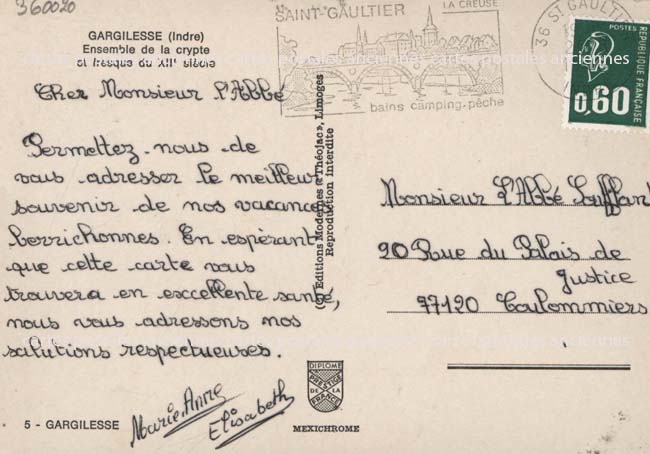 360020
GARGILESSE (Indre)
Ensemble de la crypte
et fresque du XIIe siècle
SAINT-GAULTIER
LA CREUSE
bains camping-pêche
36 ST GAULTI
POSTES
REPUBLIQUE FRANÇAISE
0,60
cartes postales anciennes
Cher Monsieur l'Abbé
Permettez-nous de
vous adresser le meilleur
souvenir de nos vacances
berrichonnes. En espérant
que cette carte vous
trouvera en excellente santé,
nous vous adressons nos
salutions respectueuses.
Marie Anne
Elisabeth
5 - GARGILESSE
(c) Editions Modernes « Théojac », Limoges
Reproduction Interdite
DIPLOME
PRESTIGE
DE LA
FRANCE
MEXICHROME
Monsieur l'Abbé
90 Rue du Palais de
Justice
77120 Coulommiers